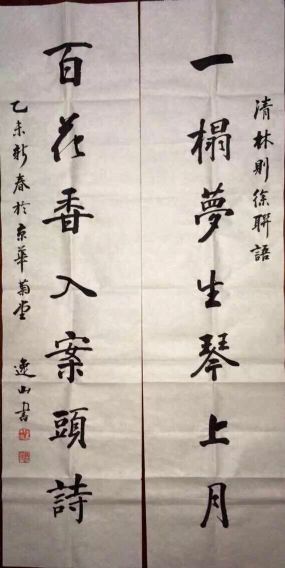 清林則徐聯語
一榻夢生琴上月
百花香入案頭詩
乙未新春於京華菊堂
逸山書